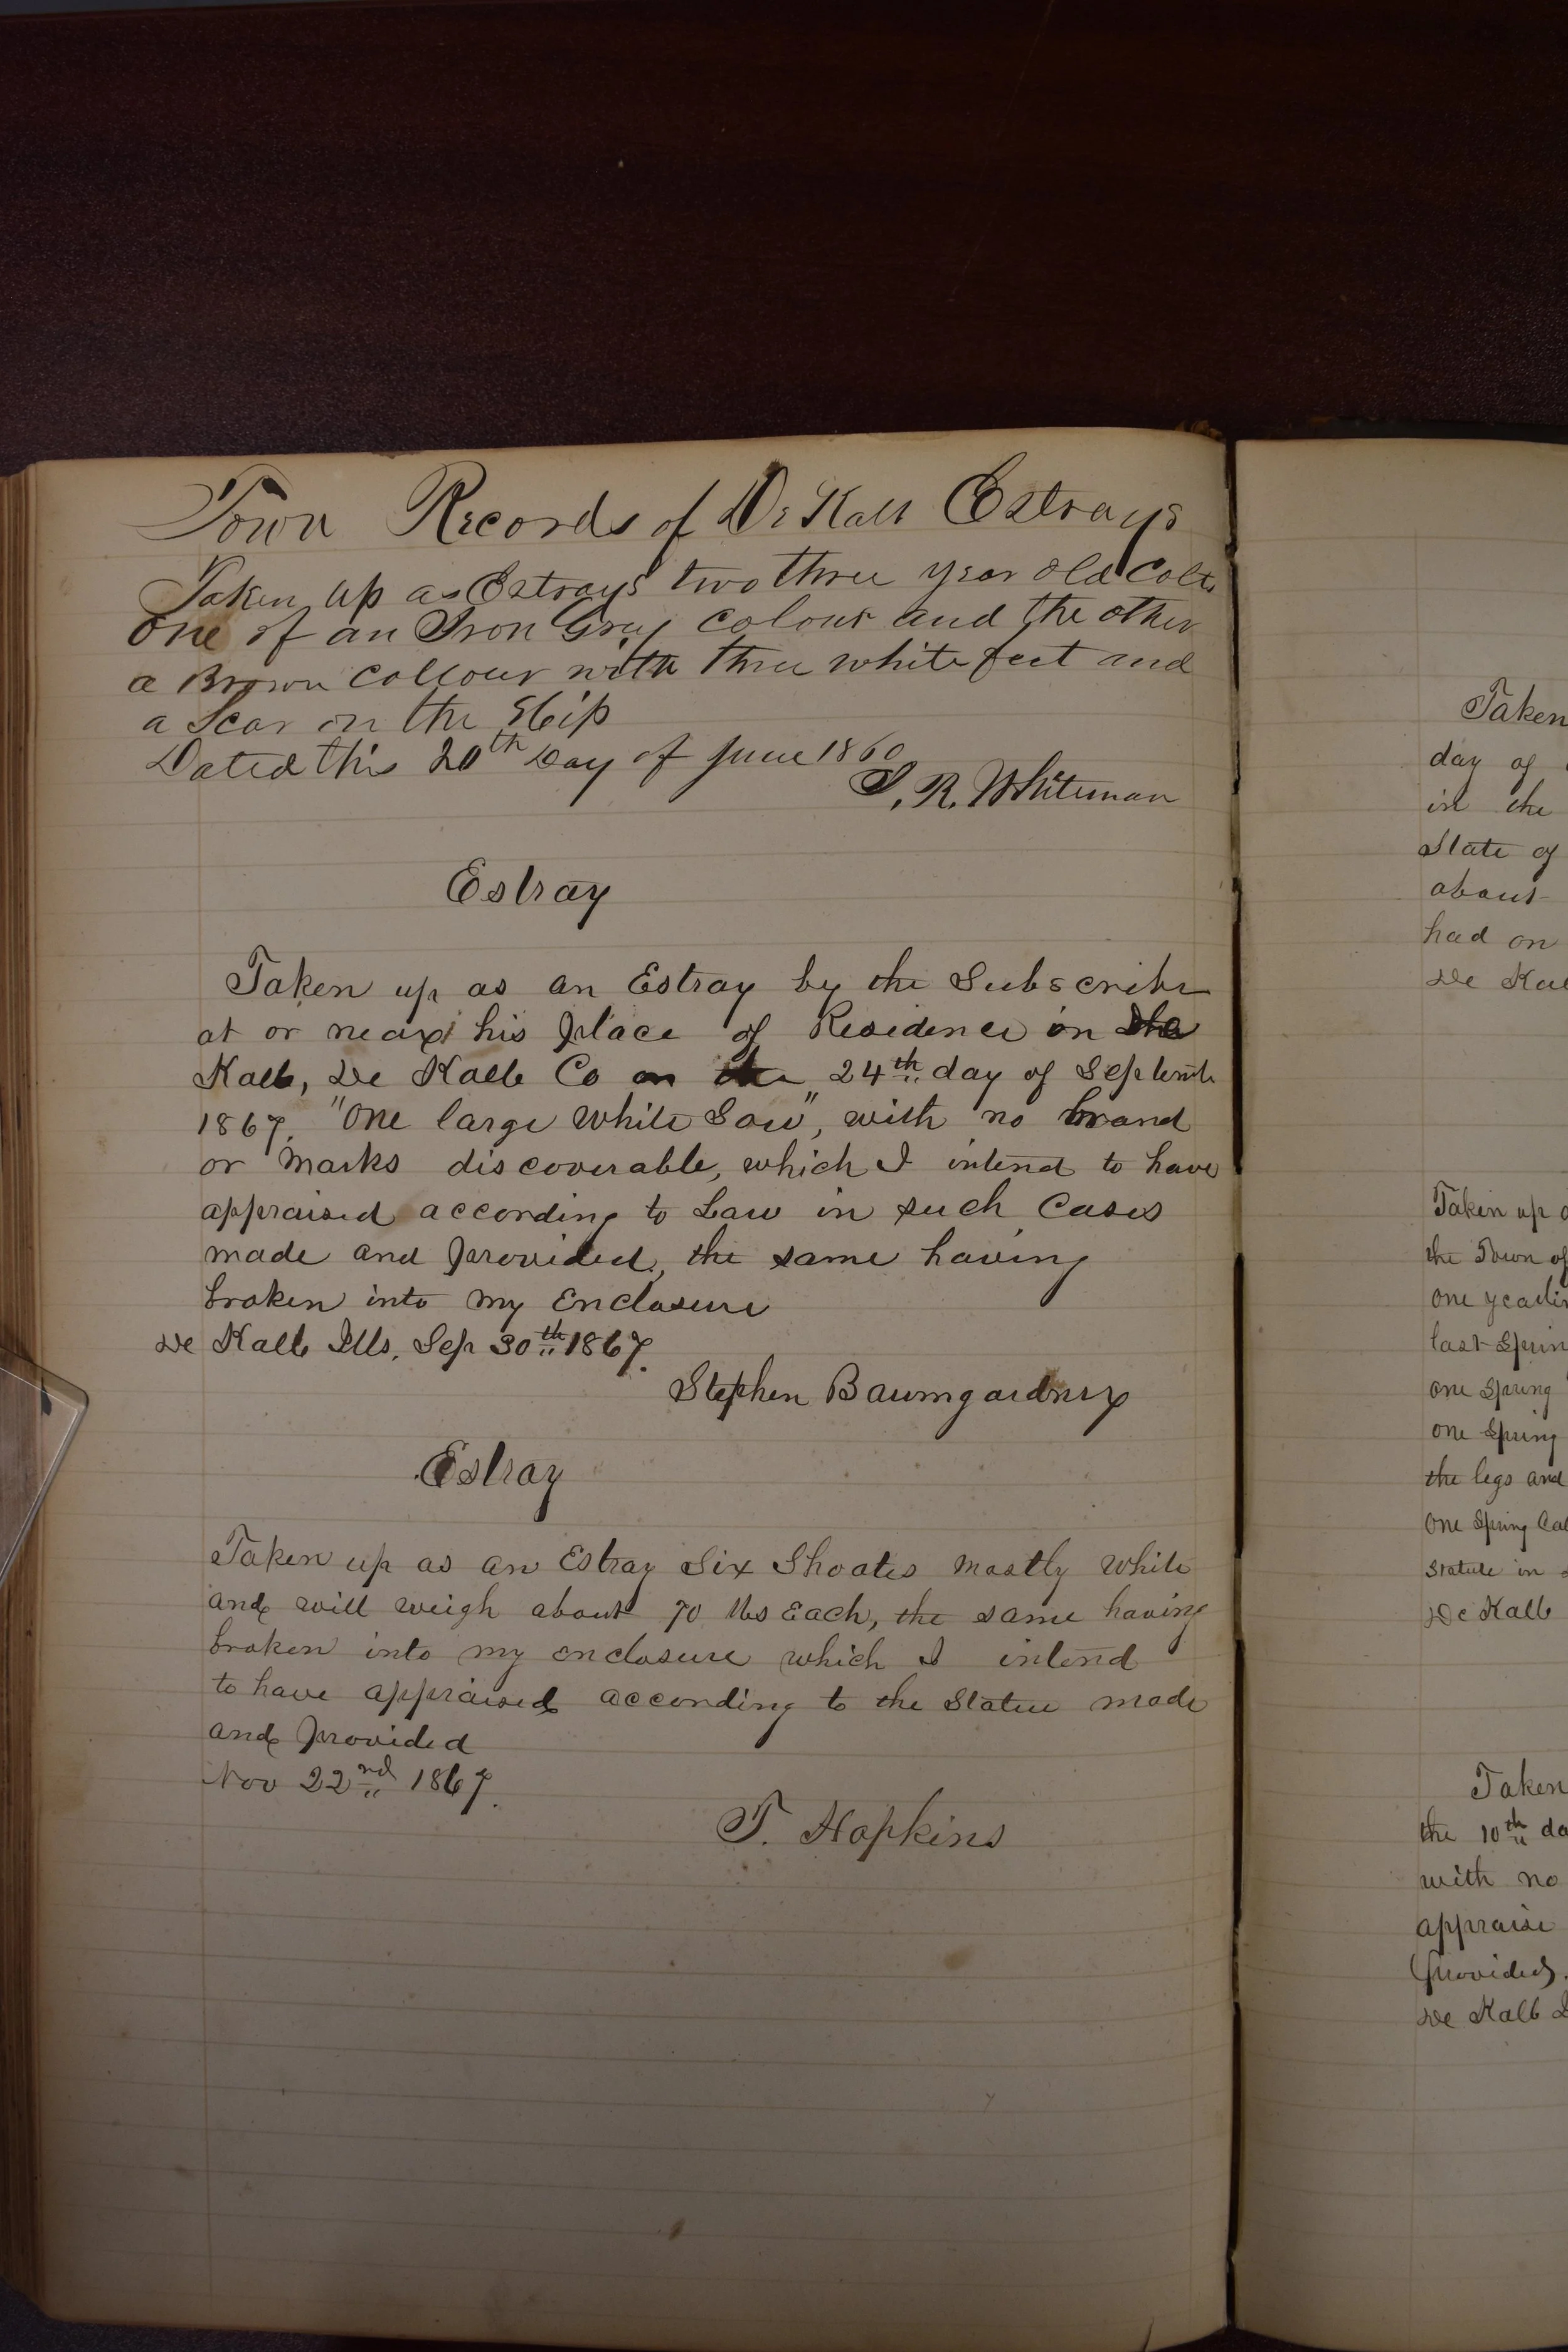 Town Records of De Kalb Estrays
Taken up as Estrays two three year old Colts
one of an Iron Gray colour and the other
a Brown collour with three white feet and
a Scar on the Hip
Dated this 20th Day of June 1860
S. R. Whiteman
Estray
Taken up as an Estray by the Subscriber
at or near his place of Residence in De
Kalb, De Kalb Co on the 24th day of Septemb
1867, "One large White Sow", with no brand
or marks discoverable, which I intend to have
appraised according to Law in such Cases
made and provided, the same having
broken into my Enclosure
De Kalb Ills, Sep 30th 1867.
Stephen Baumgardner
Estray
Taken up as an Estray Six Shoates mostly White
and will weigh about 70 lbs Each, the same having
broken into my enclosure which I intend
to have appraised according to the Statue made
and provided
Nov 22nd 1867.
T. Hopkins
Taken
day of
in the
State of
about
had on
De Kal
Taken up
the Town of
one yearlin
last Sprin
one Spring
one Spring
the legs and
One Spring Cal
Statute in
De Kalb
Taken
the 10th da
with no
appraise
provided.
De Kalb